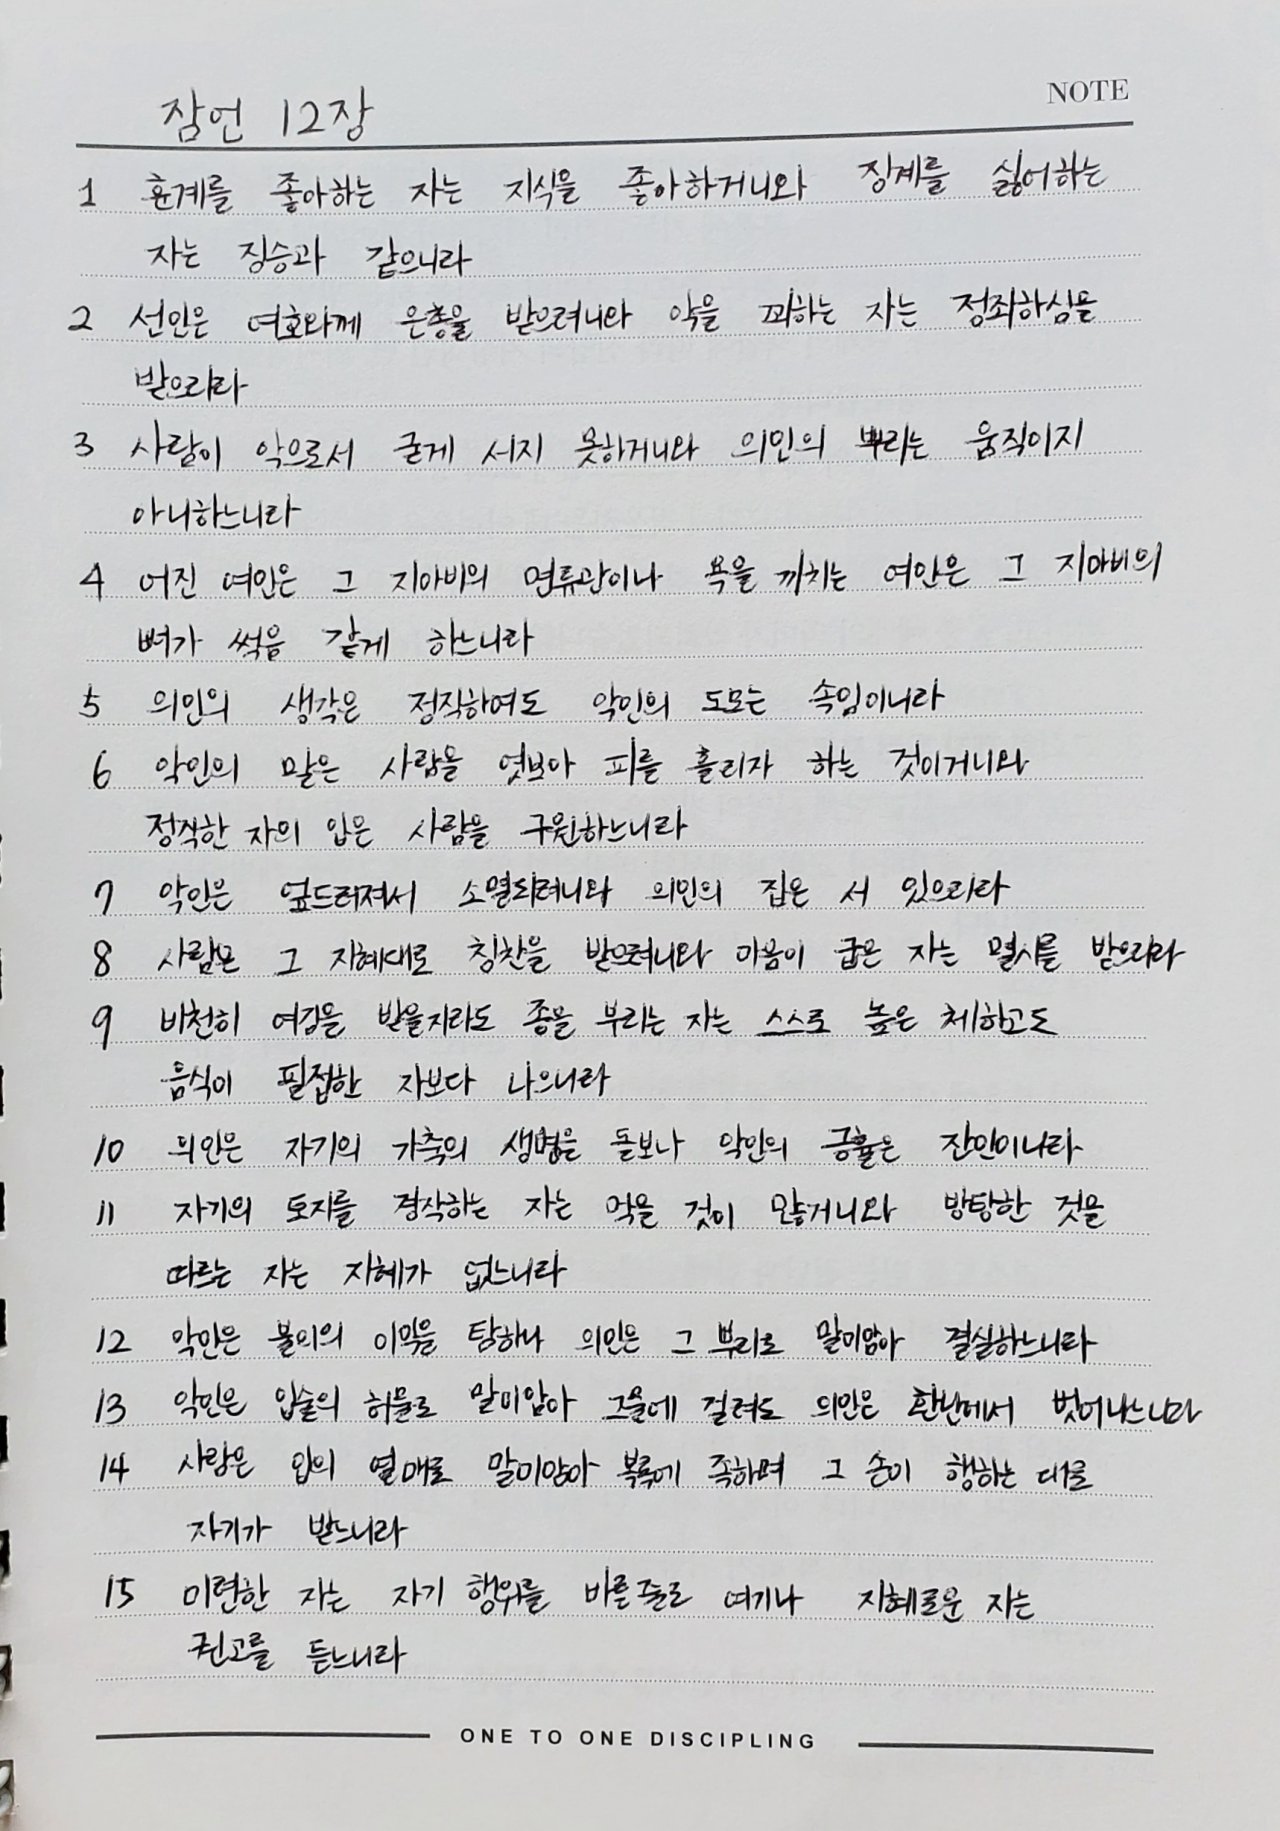 NOTE
잠언 12장
1 훈계를 좋아하는 자는 지식을 좋아하거니와 징계를 싫어하는
자는 짐승과 같으니라
2 선인은 여호와께 은총을 받으려니와 악을 꾀하는 자는 정죄하심을
받으리라
3 사람이 악으로서 굳게 서지 못하거니와 의인의 뿌리는 움직이지
아니하느니라
4 어진 여인은 그 지아비의 면류관이나 욕을 끼치는 여인은 그 지아비의
뼈가 썩음 같게 하느니라
5 의인의 생각은 정직하여도 악인의 도모는 속임이니라
6 악인의 말은 사람을 엿보아 피를 흘리자 하는 것이거니와
정직한 자의 입은 사람을 구원하느니라
7 악인은 엎드러져서 소멸되려니와 의인의 집은 서 있으리라
8 사람은 그 지혜대로 칭찬을 받으려니와 마음이 굽은 자는 멸시를 받으리라
9 비천히 여김을 받을지라도 종을 부리는 자는 스스로 높은 체하고도
음식이 핍절한 자보다 나으니라
10 의인은 자기의 가축의 생명을 돌보나 악인의 긍휼은 잔인이니라
11 자기의 토지를 경작하는 자는 먹을 것이 많거니와 방탕한 것을
따르는 자는 지혜가 없느니라
12 악인은 불의의 이익을 탐하나 의인은 그 뿌리로 말미암아 결실하느니라
13 악인은 입술의 허물로 말미암아 그물에 걸려도 의인은 환난에서 벗어나느니라
14 사람은 입의 열매로 말미암아 복록에 족하며 그 손이 행하는 대로
자기가 받느니라
15 미련한 자는 자기 행위를 바른 줄로 여기나 지혜로운 자는
권고를 듣느니라
ONE TO ONE DISCIPLING